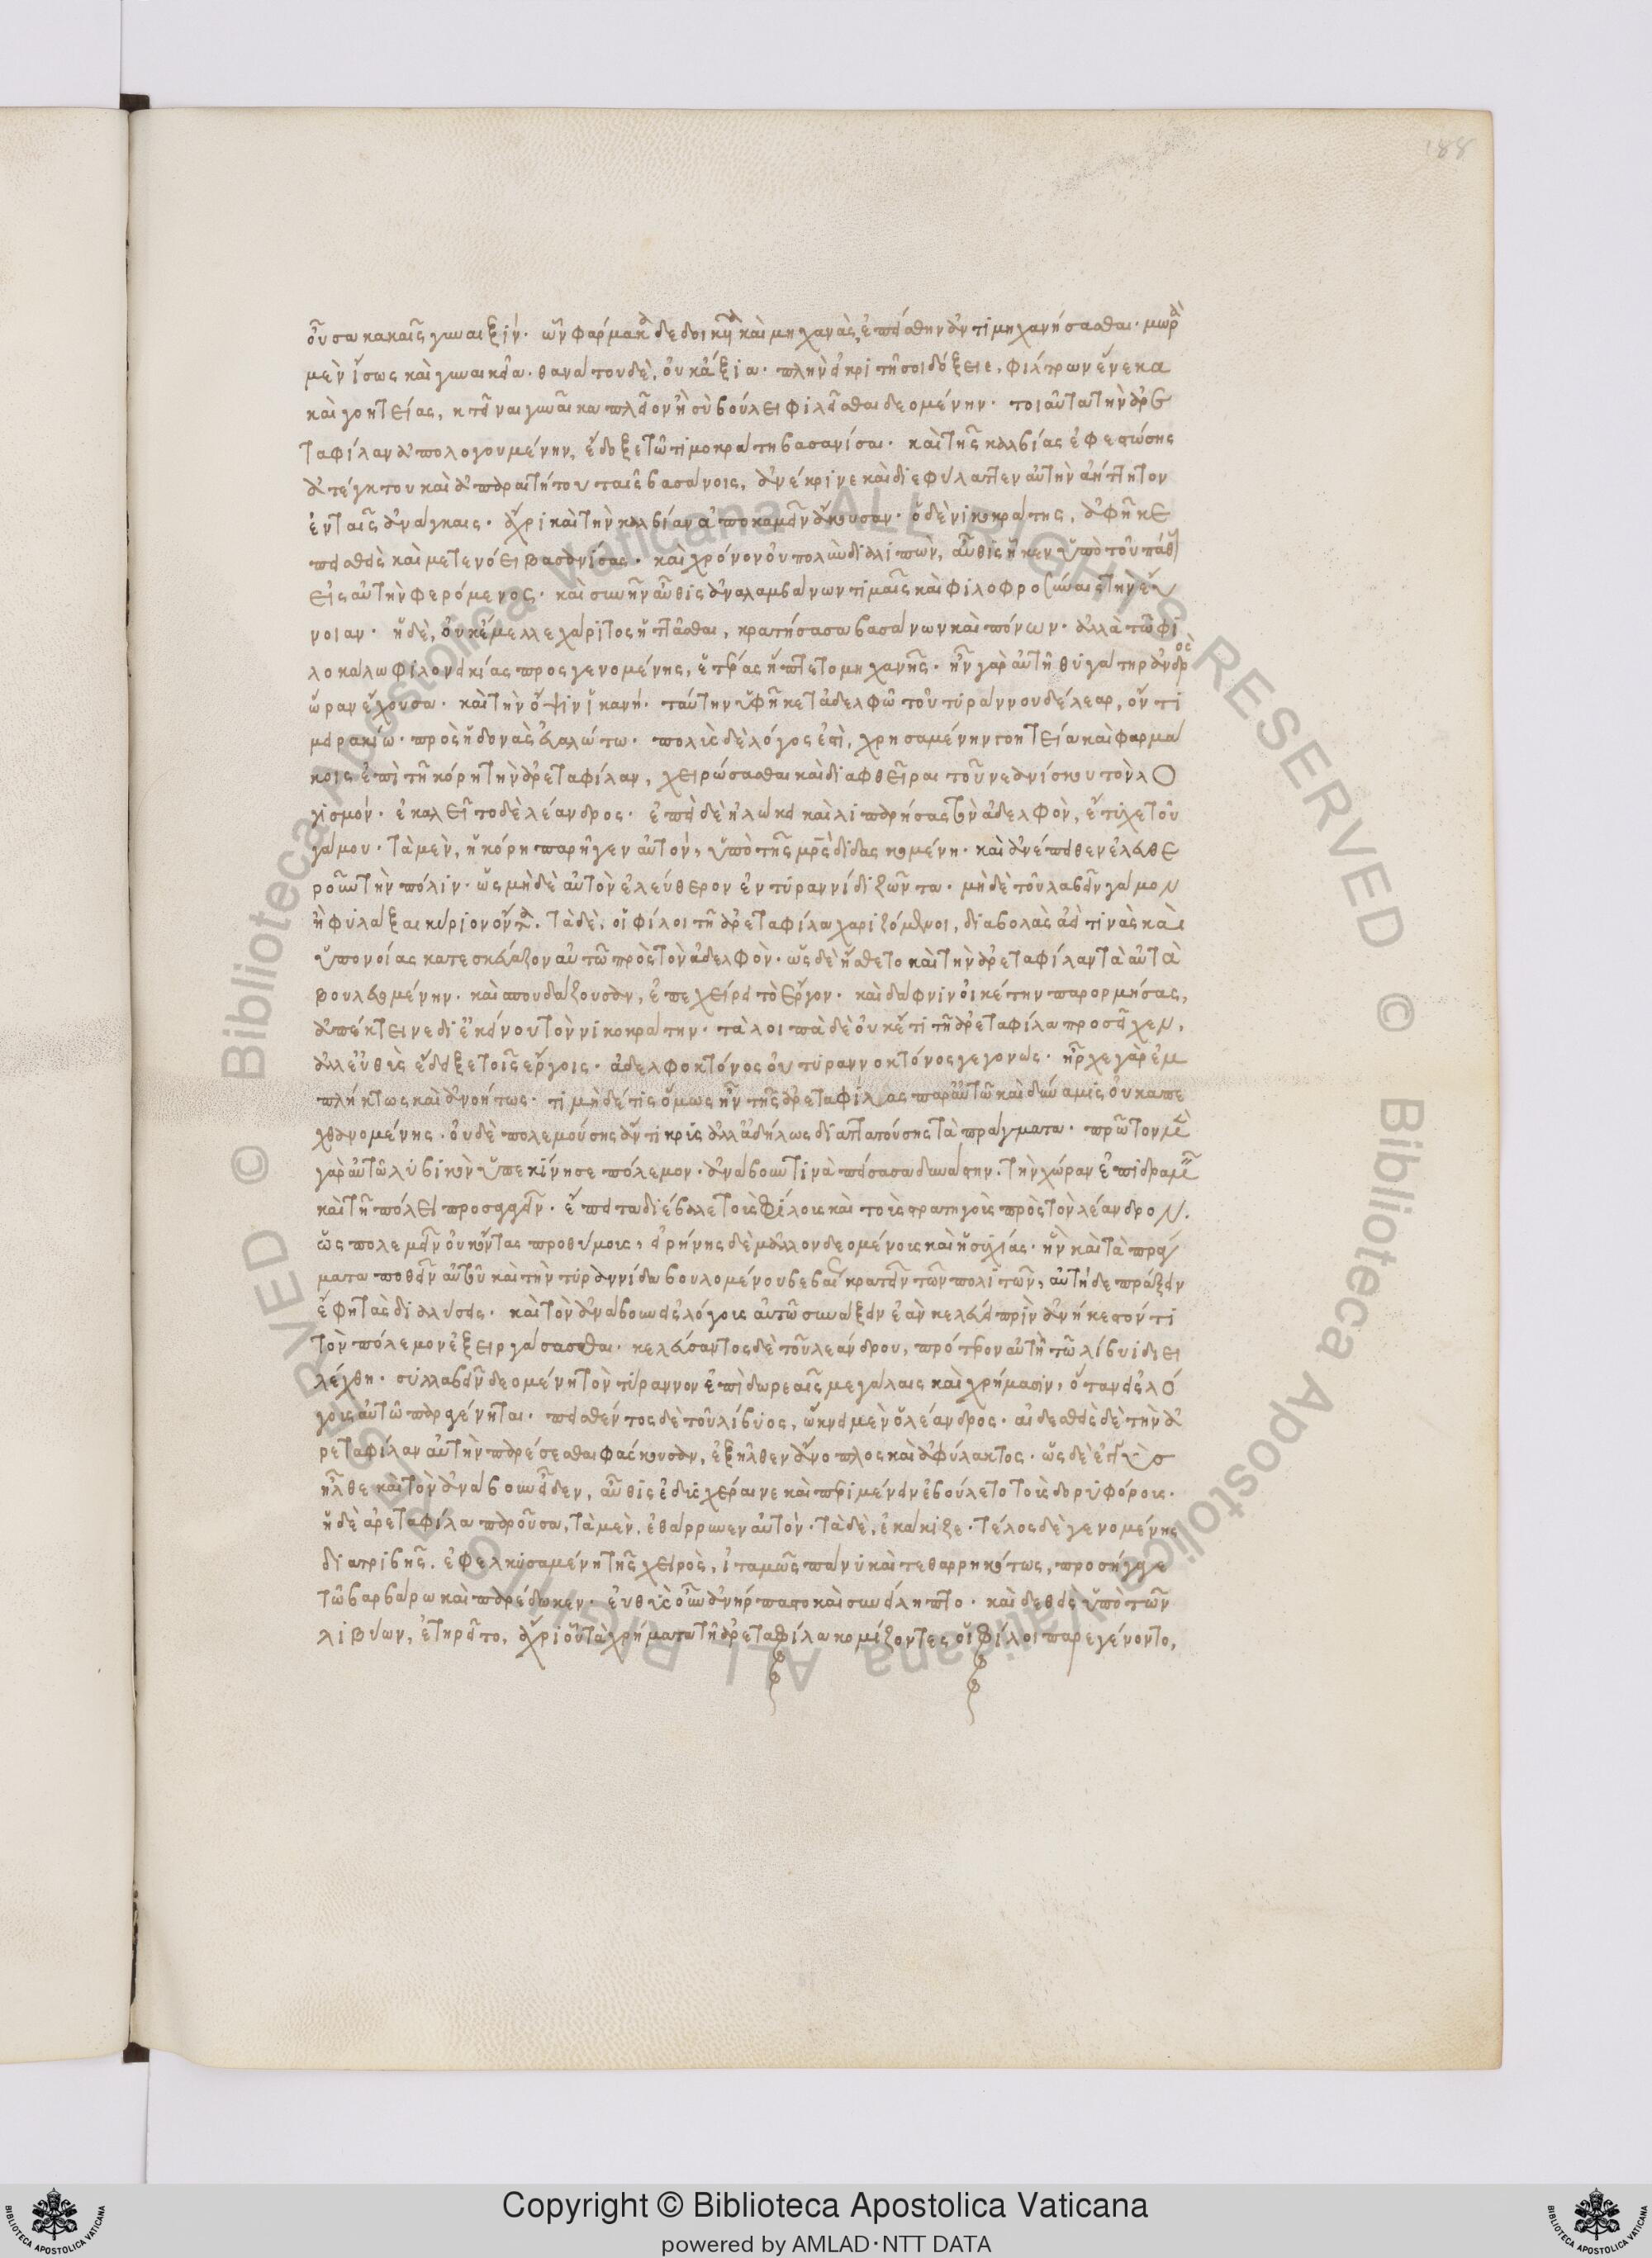 188
οὖσα κακαῖς γυναιξίν· ὧν φάρμακα δεδοικυῖα καὶ μηχανὰς, ἐπείσθην ἀντιμηχανήσασθαι· μωρὰ
μὲν ἴσως καὶ γυναικεῖα· θανάτου δὲ, οὐκ ἄξια· πλὴν εἰ κριτῇ σοι δόξειε, φίλτρων ἕνεκα
καὶ γοητείας, κτεῖναι γυναῖκα πλεῖον ἢ σὺ βούλει φιλεῖσθαι δεομένην· τοιαῦτα τὴν ἀρε
ταφίλαν ἀπολογουμένην, ἔδοξε τῶ τιμοκράτη βασανίσαι· καὶ τῆς καλβίας ἐφεστώσης
ἀτέγκτου καὶ ἀπαραιτήτου ταῖς βασάνοις, ἀνέκρινε καὶ διεφύλαττεν αὐτὴν ἀήττητον
ἐν ταῖς ἀνάγκαις· ἄχρι καὶ τὴν καλβίαν ἀποκαμεῖν ἄκουσαν· ὁ δὲ νικοκράτης, ἀφῆκε
πεισθεὶς καὶ μετενόει βασανίσας· καὶ χρόνον οὐ πολὺν διαλιπὼν, αὖθις ἧκεν ὑπὸ τοῦ πάθους
εἰς αὐτὴν φερόμενος· καὶ συνῆν αὖθις ἀναλαμβάνων τιμαῖς καὶ φιλοφροσύναις τὴν εὔ
νοιαν· ἡ δὲ, οὐκ ἔμελλε χάριτος ἡττᾶσθαι, κρατήσασα βασάνων καὶ πόνων· ἀλλὰ τῶ φι
λοκάλω φιλονεικίας προσγενομένης, ἑτέρας ἥπτετο μηχανῆς· ἦν γὰρ αὐτῇ θυγάτηρ ἀνδρὸς
ὥραν ἔχουσα· καὶ τὴν ὄψιν ἱκανή· ταύτην ὑφῆκε τἀδελφῶ τοῦ τυράννου δέλεαρ, ὄντι
μειρακίω· πρὸς ἡδονὰς εὐαλώτω· πολὺς δὲ λόγος ἐστὶ, χρησαμένην γοητεία καὶ φαρμά
κοις ἐπὶ τῇ κόρη τὴν ἀρεταφίλαν, χειρώσασθαι καὶ διαφθεῖραι τοῦ νεανίσκου τὸν λο
γισμόν· ἐκαλεῖτο δὲ λέανδρος· ἐπεὶ δὲ ἡλώκει καὶ λιπαρήσας τὸν ἀδελφὸν, ἔτυχε τοῦ
γάμου· τὰ μὲν, ἡ κόρη παρῆγεν αὐτὸν, ὑπὸ τῆς μητρὸς διδασκομένη· καὶ ἀνέπειθεν ἐλευθε
ροῦν τὴν πόλιν· ὡς μὴ δὲ αὐτὸν ἐλεύθερον ἐν τυραννίδι ζῶντα· μὴ δὲ τοῦ λαβεῖν γάμον
ἢ φυλάξαι κύριον ὄντα. τὰ δὲ, οἱ φίλοι τῇ ἀρεταφίλα χαριζόμενοι, διαβολὰς ἀεί τινας καὶ
ὑπονοίας κατεσκεύαζον αὐτῶ πρὸς τὸν ἀδελφὸν· ὡς δὲ ἤσθετο καὶ τὴν ἀρεταφίλαν τὰ αὐτὰ
βουλευομένην· καὶ σπουδάζουσαν, ἐπεχείρει τὸ ἔργον· καὶ δάφνιν οἰκέτην παρορμήσας,
ἀπέκτεινε δι' ἐκείνου τὸν νικοκράτην· τὰ λοιπὰ δὲ οὐκέτι τῇ ἀρεταφίλα προσεῖχεν,
ἀλλ' εὐθὺς ἔδειξε τοῖς ἔργοις· ἀδελφοκτόνος οὐ τυραννοκτόνος γεγονώς· ἦρχε γὰρ ἐμ
πλήκτως καὶ ἀνοήτως· τιμὴ δέ τις ὅμως ἦν τῆς ἀρεταφίλας παρ' αὐτῶ καὶ δύναμις οὐκ ἀπε
χθανομένης· οὐδὲ πολεμούσης ἄντικρυς ἀλλ' ἀδήλως διαταττούσης τὰ πράγματα· πρῶτον μὲν
γὰρ αὐτῶ λυβικὸν ὑπεκίνησε πόλεμον· ἀνάβουν τινὰ πείσασα δυνάστην. τὴν χώραν ἐπιδραμεῖν
καὶ τῇ πόλει προσαγαγεῖν· ἔπειτα διέβαλε τοὺς φίλοις καὶ τοὺς στρατηγοὺς πρὸς τὸν λέανδρον.
ὡς πολεμεῖν οὐκ ὄντας προθύμοις, εἰρήνης δὲ μᾶλλον δεομένοις καὶ ἡσυχίας· ἣν καὶ τὰ πράγ
ματα ποθεῖν αὐτοῦ καὶ τὴν τυραννίδα βουλομένου βεβαίως κρατεῖν τῶν πολιτῶν, αὐτὴ δὲ πράξειν
ἔφη τὰς διαλύσεις· καὶ τὸν ἀνάβουν εἰς λόγοις αὐτῶ συνάξειν ἐὰν κελεύει πρὶν ἀνήκεστόν τι
τὸν πόλεμον ἐξειργάσασθαι· κελεύσαντος δὲ τοῦ λεάνδρου, πρότερον αὐτὴ τῶ λίβυι διει
λέχθη· συλλαβεῖν δεομένη τὸν τύραννον ἐπὶ δωρεαῖς μεγάλαις καὶ χρήμασιν, ὅταν εἰς λό
γους αὐτῶ παραγένηται· πεισθέντος δὲ τοῦ λίβυος, ὤκνει μὲν ὁ λέανδρος· αἰδεσθεὶς δὲ τὴν ἀ
ρεταφίλαν αὐτὴν παρέσεσθαι φάσκουσαν, ἐξῆλθεν ἄνοπλος καὶ ἀφύλακτος· ὡς δὲ ἐγγὺς
ἦλθε καὶ τὸν ἀνάβουν εἶδεν, αὖθις ἐδυσχέραινε καὶ περιμένειν ἐβούλετο τοὺς δορυφόροις·
ἡ δὲ ἀρεταφίλα παροῦσα, τὰ μὲν, ἐθάρρυνεν αὐτόν· τὰ δὲ, ἐκάκιζε· τέλος δὲ γενομένης
διατριβῆς, ἐφελκυσαμένη τῆς χειρὸς, ἰταμῶς πάνυ καὶ τεθαρρηκότως, προσήγαγε
τῶ βαρβάρω καὶ παρέδωκεν· εὐθὺς οὖν ἀνήρπαστο καὶ συνείληπτο· καὶ δεθεὶς ὑπὸ τῶν
λιβύων, ἐτηρεῖτο, ἄχρι οὗ τὰ χρήματα τῇ ἀρεταφίλα κομίζοντες οἱ φίλοι παρεγένοντο,
© Biblioteca Apostolica Vaticana ALL RIGHTS RESERVED
© Biblioteca Apostolica Vaticana ALL RIGHTS RESERVED
Copyright © Biblioteca Apostolica Vaticana
powered by AMLAD·NTT DATA
BIBLIOTECA APOSTOLICA VATICANA
BIBLIOTECA APOSTOLICA VATICANA